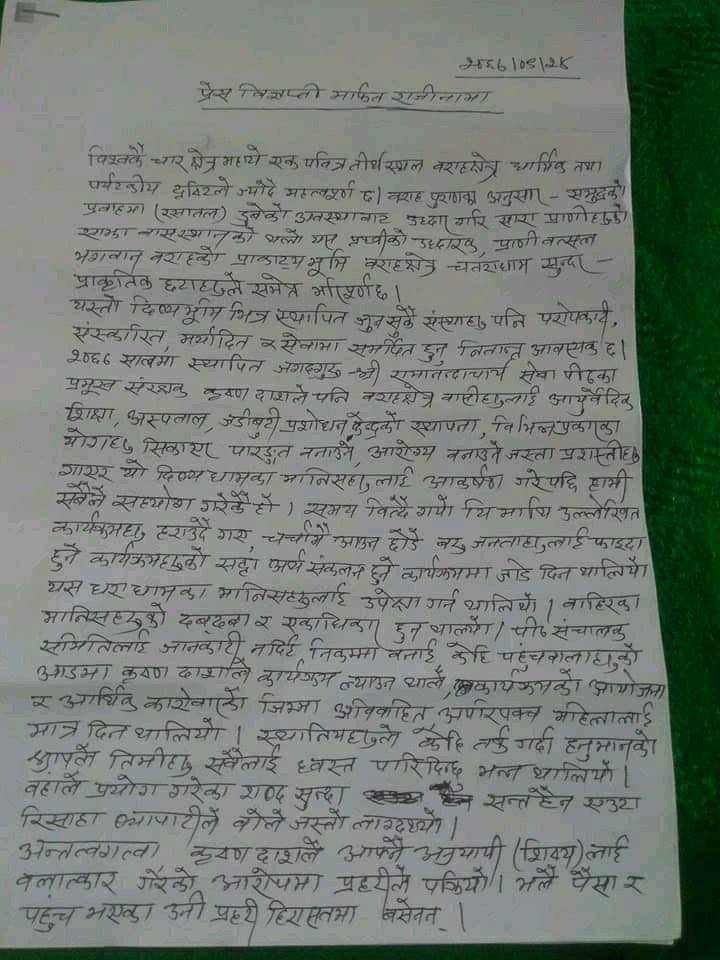 २०७६/०९/२८
प्रेस विज्ञप्ती मार्फत राजीनामा
विश्वकै चार क्षेत्र मध्ये एक पवित्र तीर्थस्थल वराहक्षेत्र धार्मिक तथा
पर्यटकीय दृष्टिले ज्यादै महत्वपूर्ण छ। वराह पुराणका अनुसार - समुद्रको
प्रवाहमा (रसातल) डुबेको अवस्थाबाट उद्दार गरि सारा प्राणीहरुको
साझा वासस्थानको थलो यस पृथ्वीको उद्दारक, प्राणी वत्सल
भगवान वराहको प्राकट्य भूमि वराहक्षेत्र चतराधाम सुन्दर -
प्राकृतिक छटाहरुले समेत भरिपूर्ण छ।
यस्तो दिव्यभूमि भित्र स्थापित जुनसुकै संस्थाहरु पनि परोपकारी,
संस्कारित, मर्यादित र सेवामा समर्पित हुनु नितान्त आवश्यक छ।
२०६६ सालमा स्थापित जगतगुरु श्री रामानन्दाचार्य सेवा पीठका
प्रमुख संरक्षक कृष्ण दाशले पनि वराहक्षेत्र वासीहरुलाई आयुर्वेदिक
शिक्षा, अस्पताल, जडीबुटी प्रशोधन केन्द्रको स्थापना, विभिन्न प्रकारका
योगहरु सिकाएर पारङ्गत बनाउने, आरोग्य बनाउने जस्ता प्रशस्तीहरु
गाएर यो दिव्य धामका मानिसहरुलाई आकर्षण गरेपछि हामी
सबैले सहयोग गरेकै हो। समय बित्दै गयो यि माथि उल्लेखित
कार्यक्रमहरु हराउँदै गए, चर्चामै आउन छोडे बरु जनताहरुलाई फाइदा
हुने कार्यक्रमहरुको सट्टा अर्थ संकलन हुने कार्यक्रममा जोड दिन थालियो
यस धराधामका मानिसहरुलाई उपेक्षा गर्न थालियो। बाहिरका
मानिसहरुको दबदबा र एकाधिकार हुन थाल्यो। पीठ संचालक
समितिलाई जानकारी नदिई निकम्मा बनाई केहि पहुँचवालाहरुको
आडमा कृष्ण दाशले कार्यक्रम ल्याउन थाले, कार्यक्रमको आयोजना
र आर्थिक कारोवारको जिम्मा अविवाहित अपरिपक्व महिलालाई
मात्र दिन थालियो। स्थानियहरुले केहि तर्क गर्दा हनुमानको
श्रापले तिमीहरु सबैलाई ध्वस्त पारिदिन्छु भन्न थालियो।
वहाँले प्रयोग गरेका शब्द सुन्दा सन्त हैन एउटा
रिसाहा व्यापारीले बोले जस्तो लाग्दथ्यो।
अन्तत्वगत्वा कृष्ण दाशले आफ्नै अनुयायी (शिष्य) लाई
बलात्कार गरेको आरोपमा प्रहरीले पक्रियो। भलै पैसा र
पहुँच भएका उनी प्रहरी हिरासतमा बसेनन्।